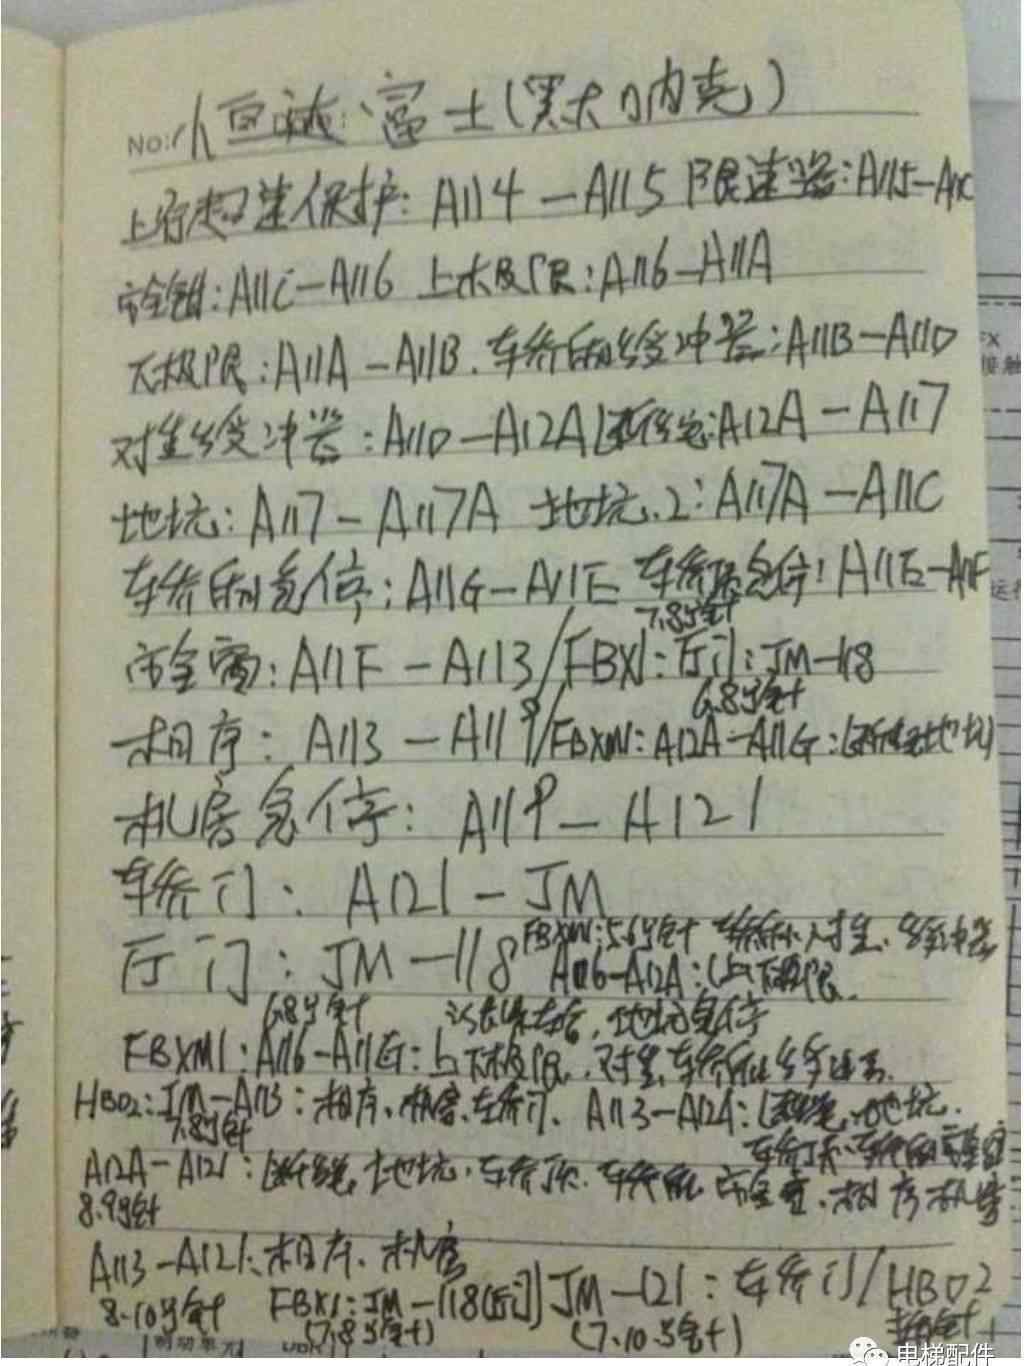 No: 小巨无达 富士(默大纳克)
上行超速保护: A114 — A115 限速器: A115—A11C
安全钳: A11C—A116 上极限: A116—A11A
下极限: A11A — A11B. 轿厢缓冲器: A11B—A11D
对重缓冲器: A11D—A12A 断绳: A12A — A117
地坑: A117 — A117A 地坑.2: A117A — A11C
轿厢急停: A11G—A11E 轿顶急停: A11E—A11F
7.8号针
安全窗: A11F — A113/FBX1: 厅门: JM—118
6.8号针
相序: A113 — A119/FBXM1: A12A—A11G: (断绳地坑)
机房急停: A119 — A121
轿门: A121 — JM
厅门: JM — 118 FBXM1: 5.6号针 轿厢、对重、缓冲器
A116—A12A: (上下极限.
6.8号针 地坑急停
FBXM1: A116—A11G: 上下极限. 对重. 轿厢缓冲器.
HBD2: JM—A113: 相序、机房、轿门、A113—A12A: 断绳、地坑.
7.8号针 轿顶、轿厢安全窗
A12A—A121: 断绳, 地坑. 轿顶. 轿厢. 安全窗. 相序 机房
8.9号针
A113—A121: 相序、机房
FBX1: JM—118(厅门) JM—121: 轿门/HBD2
8.10号针 (7.8号针) (7.10号针)
制动单元
接触
运行
电梯配件